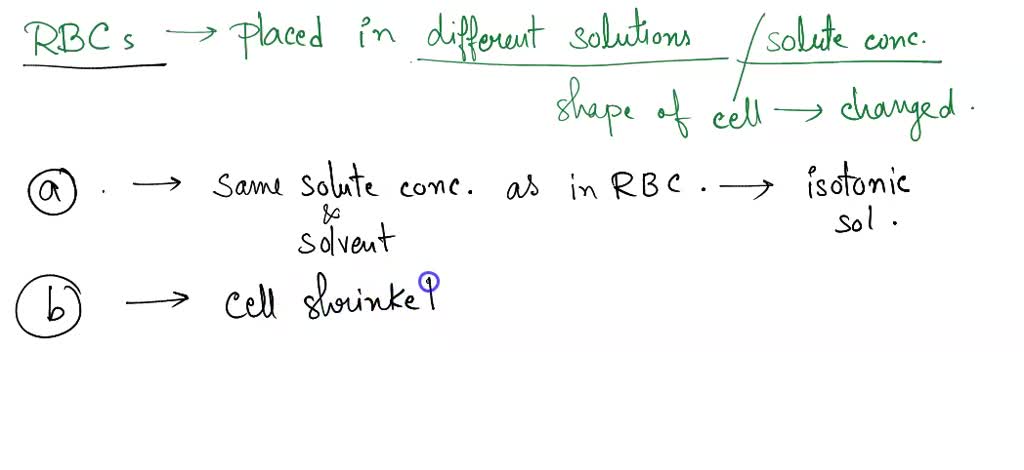 RBCs → placed in different solutions / solute conc.
shape of cell → changed.
a . → same solute conc. as in RBC. → isotonic
& sol.
solvent
b → cell shrinke